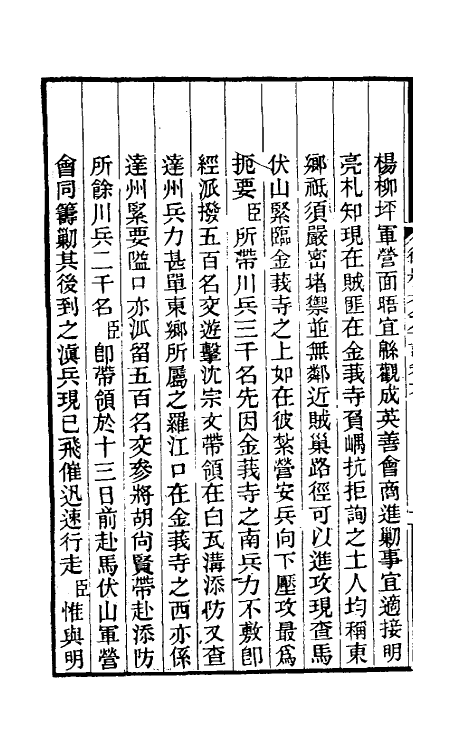 楊柳坪軍營面晤宜緜觀成英善會商進勦事宜適接明
亮札知現在賊匪在金莪寺負嵎抗拒詢之土人均稱東
鄉祇須嚴密堵禦並無鄰近賊巢路徑可以進攻現查馬
伏山緊臨金莪寺之上如在彼紮營安兵向下壓攻最爲
扼要臣所帶川兵三千名先因金莪寺之南兵力不敷卽
經派撥五百名交遊擊沈宗文帶領在白瓦溝添防又查
達州兵力甚單東鄉所屬之羅江口在金莪寺之西亦係
達州緊要隘口亦派留五百名交參將胡尚賢帶赴添防
所餘川兵二千名臣卽帶領於十三日前赴馬伏山軍營
會同籌勦其後到之滇兵現已飛催迅速行走臣惟與明